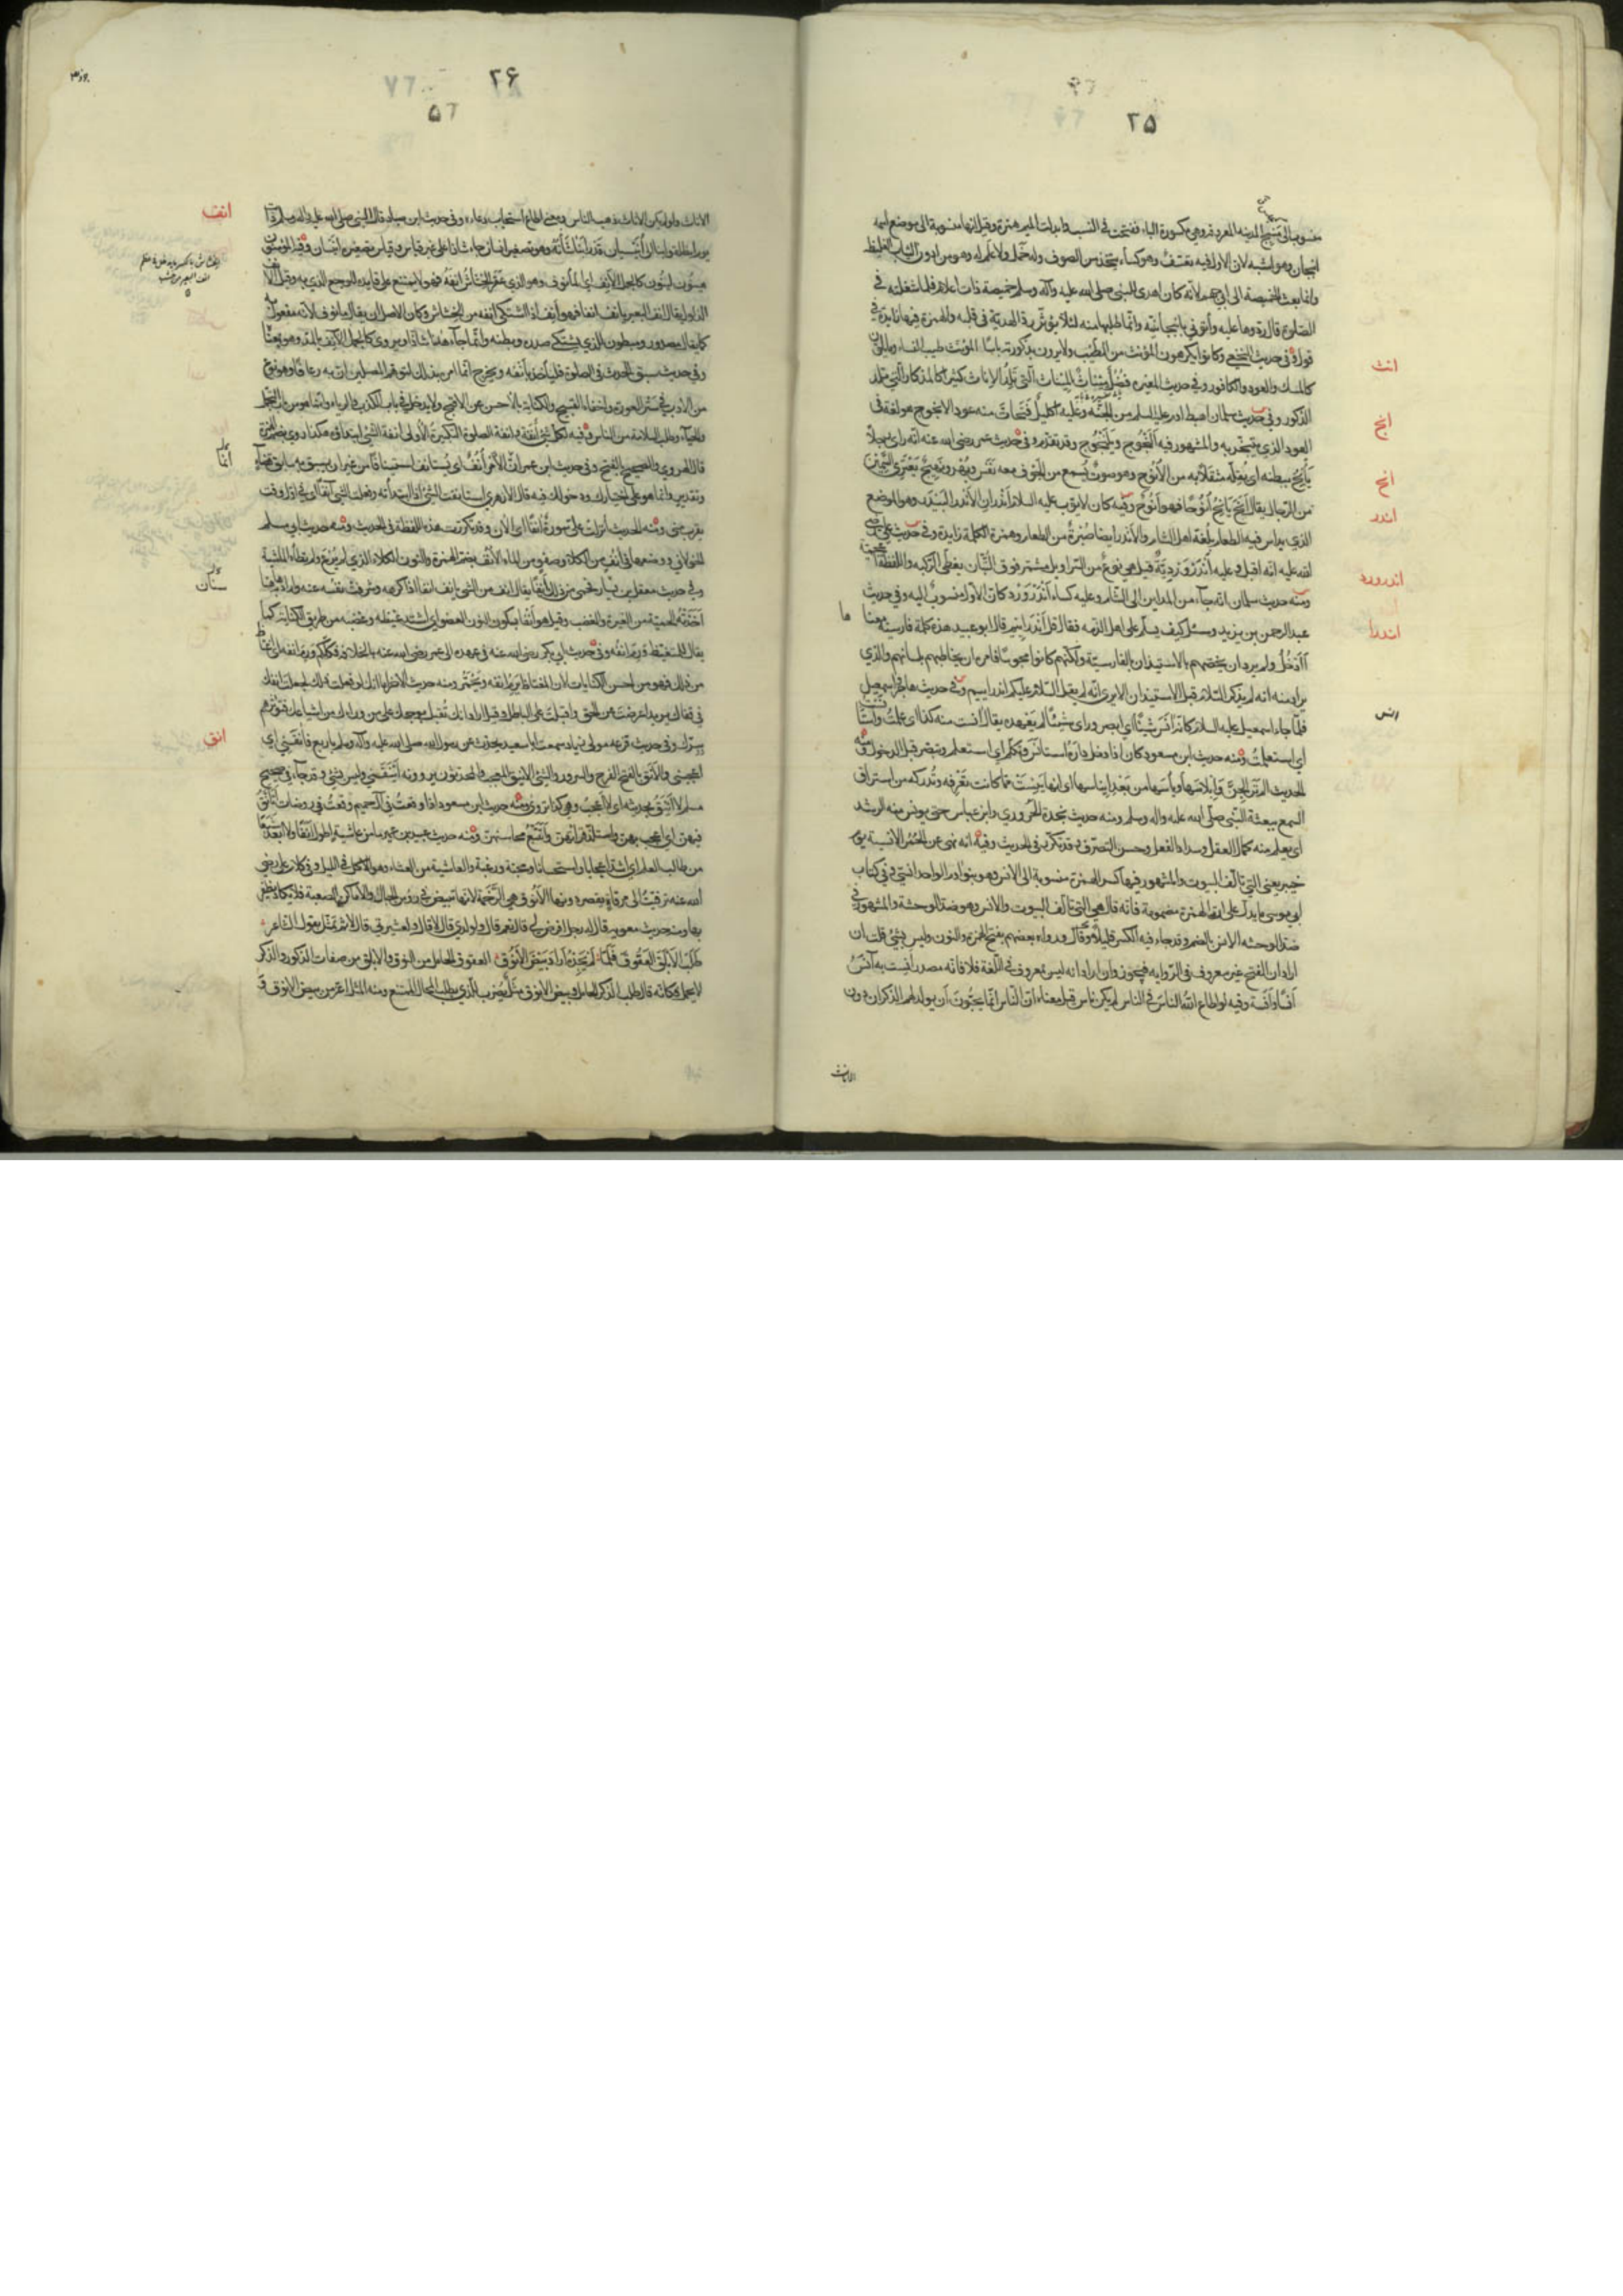 ٢٥
منسوب الى منبج المدينه المعروفه وهي مكسورة الباء ففتحت في النسب وابدلت الميم همزة وقيل انها منسوبة الى موضع اسمه
انبجان وهو اشبه لان الاول فيه تعسف وهو كساء يتخذ من الصوف وله خمل ولا علم له وهو من ادون الثياب الغليظة
وانما بعث الخميصة الى ابي جهم لانه كان اهدى للنبي صلى الله عليه وآله وسلم خميصة ذات اعلام فلما شغلته في
الصلوة قال ردوها عليه وأتوني بانبجانيته وانما طلبها منه لئلا يؤثر رد الهدية في قلبه والهمزة فيها زايدة في
قول وفي حديث النخعي كانوا يكرهون المؤنث من الطيب ولا يرون بذكورته باسا المؤنث طيب النساء وما يلون
كالمسك والعود والكافور وفي حديث المغيره فضل مئناث المئناث التي تلد الإناث كثيرا كالمذكار التي تلد
الذكور وفي حديث سلمان اهبط ادم عليه السلم من الجنه وعليه اكليل فتحات منه عود الانجوج هو لغة في
العود الذي يتبخر به والمشهور فيه النجوج ويلنجوج وقد تقدم وفي حديث عمر رضى الله عنه انه راى رجلا
يأنح ببطنه اى يقله مثقلا به من الأنوح وهو صوت يسمع من الجوف معه نفس وبهر ونهيج يعترى السمين
من الرجال يقال انح يانح أنوحا فهو أنوح وفيه كان لايوب عليه السلام أندران الأندر البيدر وهو الموضع
الذي يداس فيه الطعام بلغة اهل الشام والأندر ايضا صبرة من الطعام وهمزة الكلمة زايدة وفي حديث علي رضى
الله عليه انه اقبل وعليه أندروردية قيل هي نوع من السراويل مشمر فوق التبان يغطى الركبه واللفظة اعجمية
ومنه حديث سلمان انه جاء من المداين الى الشام وعليه كساء أندرورد كان الاول منسوب اليه وفي حديث
عبد الرحمن بن يزيد وسئل كيف يسلم على اهل الذمه فقال قل أندراينم قال ابو عبيد هذه كلمة فارسية معناها
أأدخل ولم يرد ان يخصهم بالاستيذان بالفارسية ولكنهم كانوا مجوسا فامر ان يخاطبهم بلسانهم والذي
يراد منه انه لم يذكر السلام قبل الاستيذان الا يرى انه لم يقل السلام عليكم اندراينم وفي حديث هاجر واسمعيل
فلما جاء اسمعيل عليه السلام كانه أنس شيئا اى ابصر وراى شيئا لم يعهده يقال آنست منه كذا اى علمت واستأنست
اى استعلمت ومنه حديث ابن مسعود كان اذا دخل داره استأنس وتكلم اى استعلم وتبصر قبل الدخول ومنه
الحديث الم تر الجن وابلاسها ويأسها من بعد ايناسها اى انها يئست مما كانت تعرفه وتدركه من استراق
السمع ببعثة النبي صلى الله عليه واله وسلم ومنه حديث نجدة الحروري وابن عباس حتى يونس منه الرشد
اى يعلم منه كمال العقل وسداد الفعل وحسن التصرف وقد تكرر في الحديث وفيه انه نهى عن الحمر الانسية يوم
خيبر يعنى التي تالف البيوت والمشهور فيها كسر الهمزة منسوبة الى الانس وهم بنو ادم الواحد انسي وفي كتاب
ابي موسى ما يدل على ان الهمزة مضمومة فانه قال هي التي تألف البيوت والانس وهو ضد الوحشة والمشهور في
ضد الوحشه الانس بالضم وقد جاء فيه الكسر قليلا وقال ورواه بعضهم بفتح الهمزة والنون وليس بشئ قلت ان
اراد ان الفتح غير معروف في الروايه فيجوز وان اراد انه ليس بمعروف في اللغة فلا فانه مصدر أنست به آنس
أنسا وأنسة وفيه لو اطاع الله الناس في الناس لم يكن ناس قيل معناه ان الناس انما يحبون ان يولد لهم الذكران دون
الاناث
انث
انج
انح
اندر
اندرورد
اندرا
انس
٢۶
الاناث ولو لم يكن الاناث ذهب الناس ومعنى اطاع استجاب دعاءه وفي حديث ابن صياد قال النبي صلى الله عليه واله وسلم ذات
يوم انطلقوا بنا الى أنيسيان قد رأينا شأنه وهو تصغير انسان جاء شاذا على غير قياس وقياس تصغيره أنيسان وفيه المؤمنون
هينون لينون كالجمل الأنف اى المأنوف وهو الذي عقر الخشاش انفه فهو لا يمتنع على قايده للوجع الذي به وقيل الانف
الذلول يقال انف البعير يانف انفا فهو أنف اذا اشتكى انفه من الخشاش وكان الاصل ان يقال مانوف لانه مفعول به
كما يقال مصدور ومبطون للذي يشتكى صدره وبطنه وانما جاء هذا شاذا ويروى كالجمل الآنف بالمد وهو بمعناه
وفي حديث سبق الحدث في الصلوة فلياخذ بأنفه ويخرج انما امره بذلك ليوهم المصلين ان به رعافا وهو نوع
من الادب في ستر العورة واخفاء القبيح والكناية بالأحسن عن الاقبح ولا يدخل في باب الكذب والرياء وانما هو من باب التجمل
والحياء وطلب السلامة من الناس وفيه لكل شئ أنفة وانفة الصلوة التكبيرة الأولى انفة الشئ ابتداؤه هكذا روى بضم الهمزة
قال الهروي والصحيح بالفتح وفي حديث ابن عمر ان الامر أنف اى يستانف استينافا من غير ان يسبق به سابق قضاء
وتقدير وانما هو على اختيارك ودخولك فيه قال الازهري استانفت الشئ اذا ابتدأته وفعلت الشئ آنفا اى في اول وقت
يقرب منى ومنه الحديث انزلت على سورة آنفا اى الأن وقد تكررت هذه اللفظة في الحديث ومنه حديث ابي مسلم
الخولاني ووضعها في أنف من الكلاء وصفو من الماء الأنف بضم الهمزة والنون الكلاء الذي لم يرع ولم يطأه الماشية
وفي حديث معقل بن يسار فحمى من ذلك أنفا يقال انف من الشئ يانف انفا اذا كرهه وشرفت نفسه عنه واراد به هاهنا
اخذته الحمية من الغيرة والغضب وقيل هو أنفا بسكون النون للعضو اى اشتد غيظه وغضبه من طريق الكناية كما
يقال للمتغيظ ورم انفه وفي حديث ابي بكر رضى الله عنه في عهده الى عمر رضى الله عنه بالخلافة فكلكم ورم انفه اى اغتاظ
من ذلك فهو من احسن الكنايات لان المغتاظ يرم انفه ويحمر ومنه حديثه الاخر اما انك لو فعلت ذلك لجعلت انفك
في قفاك يريد اعرضت عن الحق واقبلت على الباطل وقيل اراد انك تقبل بوجهك على من وراءك من اشياعك فتؤثرهم
ببرك وفي حديث قزعه مولى زياد سمعت ابا سعيد يحدث عن رسول الله صلى الله عليه وآله وسلم باربع فآنقنني اى
اعجبنني والأنق بالفتح الفرح والسرور والشئ الانيق المعجب والمحدثون يروونه أينقنني وليس بشئ وقد جاء في صحيح
مسلم لا اينق بحديثه اى لا أعجب وهي كذا تروى ومنه حديث ابن مسعود اذا وقعت في آل حميم وقعت في روضات أتأنق
فيهن اى اعجب بهن واستلذ قراءتهن وأتتبع محاسنهن ومنه حديث عبيد بن عمير ما من عاشية اطول أنقا ولا ابعد شبعا
من طالب العلم اى اشد اعجابا واستحسانا ومحبة ورغبة والعاشية من العشاء وهو الاكل في الليل وفي كلام علي رضى
الله عنه ترقيت الى مرقاة يقصر دونها الأنوق هي الرخمة لانها تبيض في رؤس الجبال والاماكن الصعبة فلا يكاد يظفر
بها ومنه حديث معويه قال له رجل افرض لي قال نعم قال ولولدي قال لا قال ولعشيرتي قال لا ثم تمثل بقول الشاعر
طلب الأبلق العقوق فلما لم يجده أراد بيض الأنوق العقوق الحامل من النوق والابلق من صفات الذكور والذكر
لا يحمل فكانه قال طلب الذكر الحامل وبيض الانوق مثل يضرب للذي يطلب المحال الممتنع ومنه المثل اعز من بيض الانوق
انف
انق